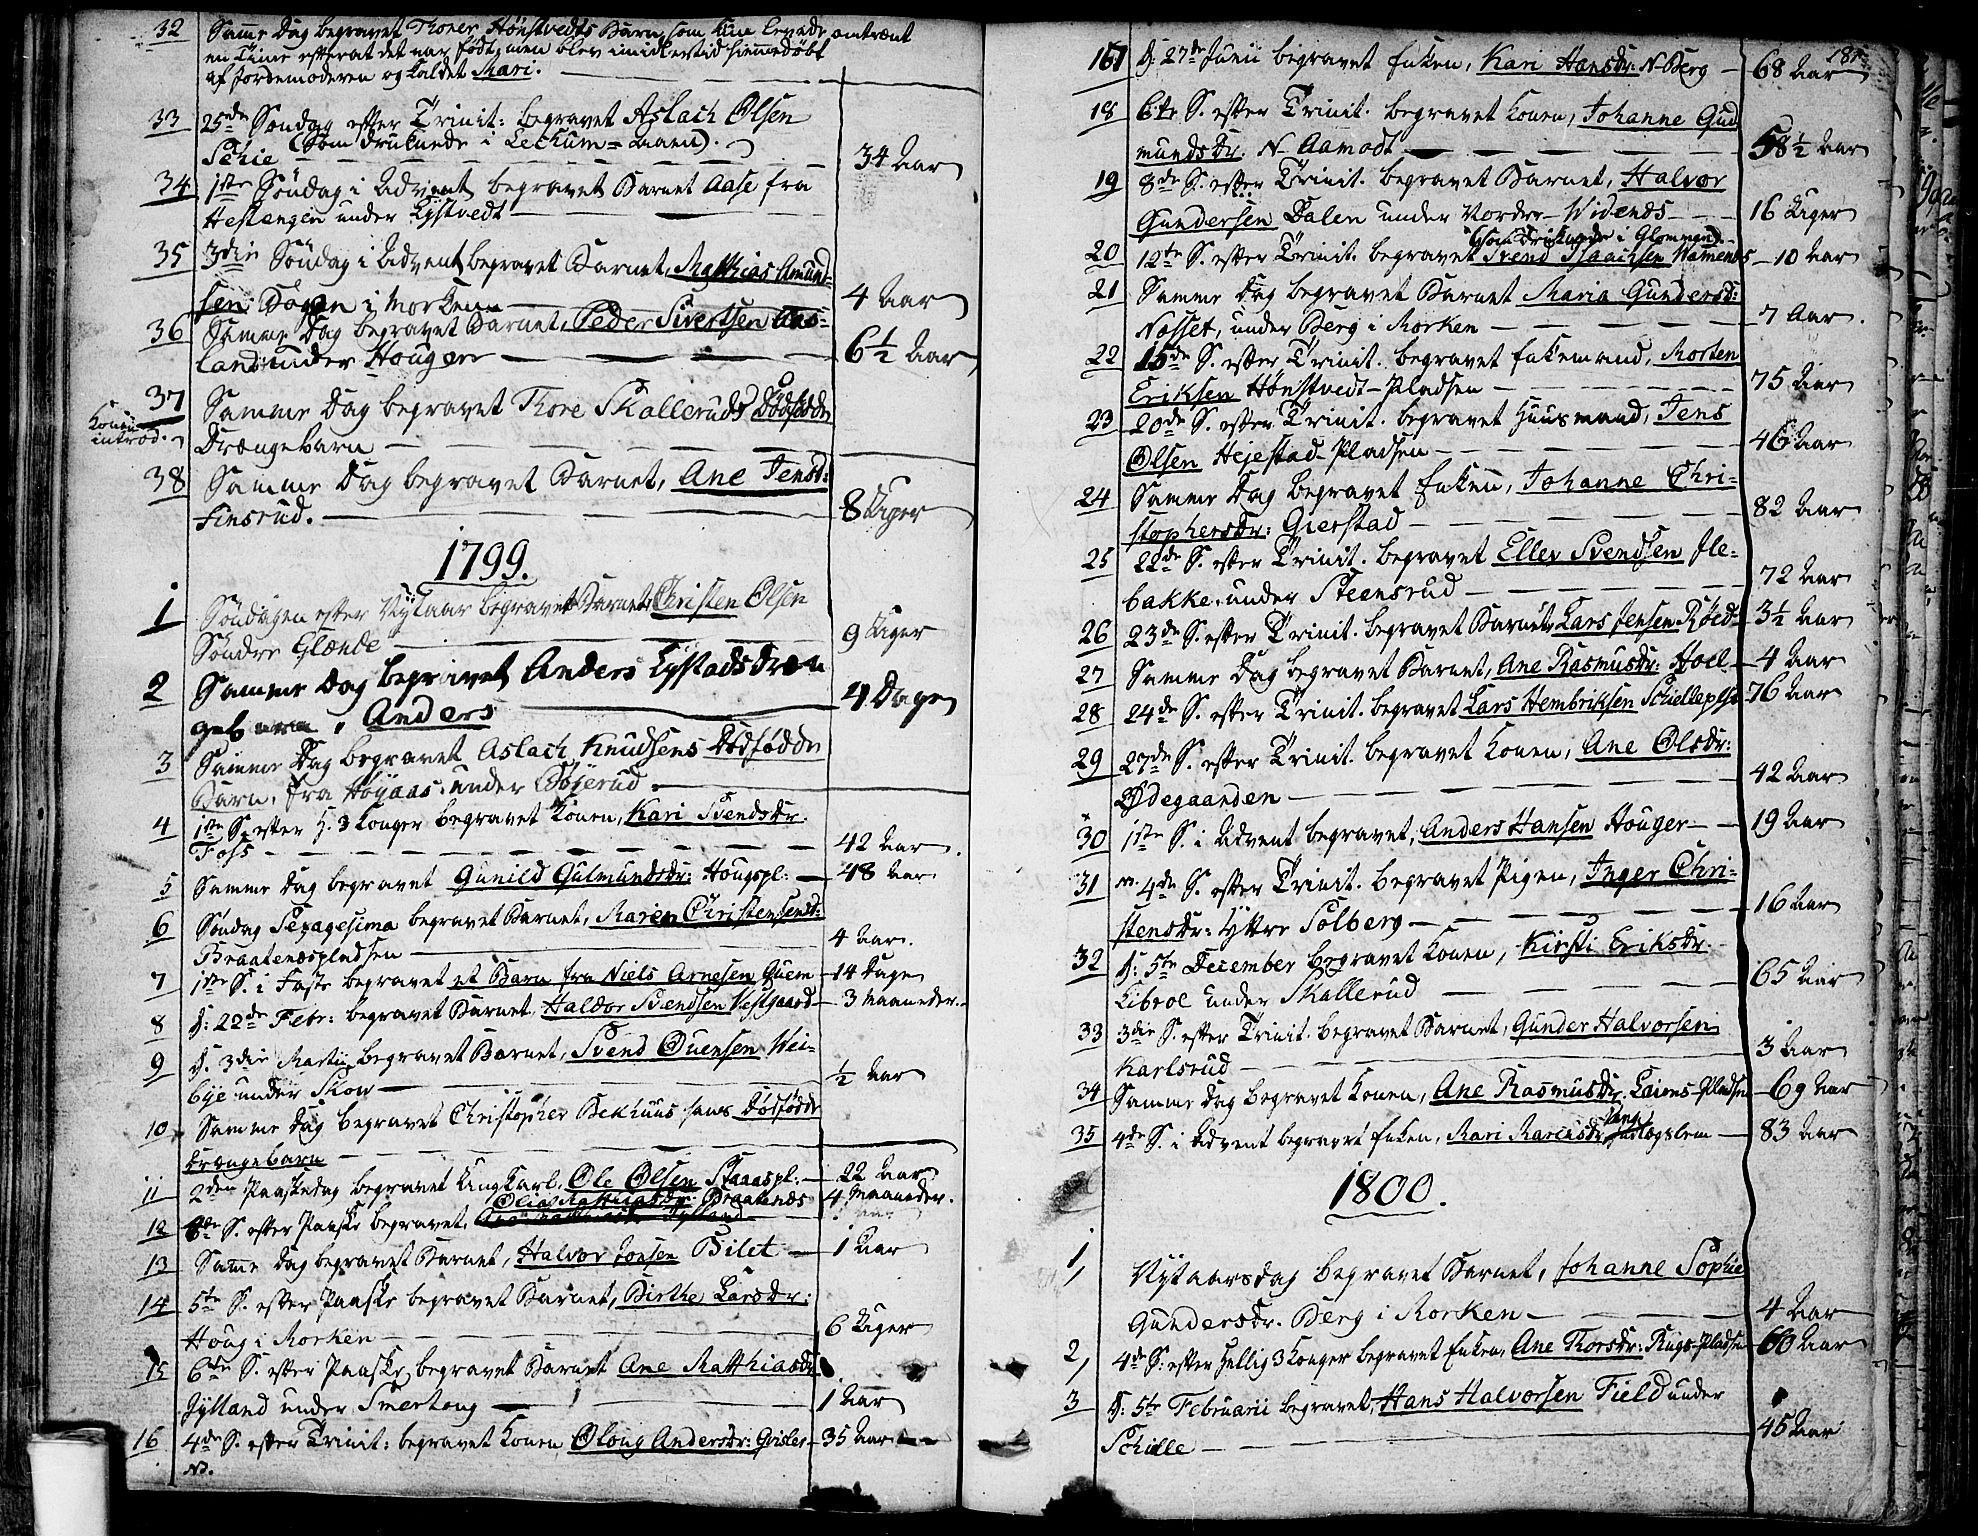 32 Samme Dag begravet Thoner Hønstvedts Barn, som kun levede omtrent
en Time efter at det var født, men blev imidlertid hiemmedøbt
af Jordemoderen og kaldet Mari.
33 25de Søndag efter Trinit: begravet Aslach Olsen
Schie (som druknede i Lechum=aaen). 34 Aar
34 1ste Søndag i Advent begravet Barnet Aase fra
Hestengen under Lystvedt
35 3die Søndag i Advent begravet Barnet, Matthias Amund-
sen i Morken 4 Aar
36 Samme Dag begravet Barnet, Peder Sivertsen Aas-
land under Hougen 6 1/2 Aar
37 Samme Dag begravet Thore Skalleruds Dødfødde
Konen introd.
Drængebarn
38 Samme Dag begravet Barnet, Ane Jensd:
Finsrud. 8 Uger
1799.
1 Søndagen efter Nytaar begravet Barnet Christen Olsen
Søndre Glende 9 Uger
2 Samme Dag begravet Anders Lystads Dræn
gebarn, Anders 4 Dage
3 Samme Dag begravet Aslach Knudsens Dødfødde
Barn, fra Høyaas under Bøyerud.
4 1ste S. efter H. 3 Konger begravet Konen, Kari Svendsdr.
Foss 42 Aar.
5 Samme Dag begravet Gunild Gulmundsdr: Hougspl: 48 Aar
6 Søndag Sexagesima begravet Barnet, Maren Christensensd:
Braatenespladsen 4 Aar.
7 1ste S. i Faste begravet et Barn fra Niels Arnesen Guem 14 Dage
8 D: 22de Febr: begravet Barnet, Haldor Svendsen Vestgaard 3 Maaneder.
9 D. 3die Martii begravet Barnet, Svend Ouensen Wei-
bye under Skou 1/2 Aar
10 Samme Dag begravet Christopher Bekhuus hans Dødfødde
Drængebarn
11 2den Paaskedag begravet Ungkarl, Ole Olsen Staaspl: 22 Aar
Olia Matthiasdr: Braatenes 4 Maaneder.
12 6te S. efter Paaske begravet,
13 Samme Dag begravet Barnet, Halvor Jonsen Bilet 1 Aar
14 5te S. efter Paaske begravet Barnet, Birthe Larsdr:
Houg i Morken 6 Uger
15 6te S. efter Paaske begravet Barnet Ane Matthiasdr
Jylland under Smertoug 1 Aar
16 4de S. efter Trinit: begravet Konen Oloug Andersdr: Gvisler 35 Aar
No.
181
167 D. 27de Junii begravet Enken, Kari Hansdr: N-Berg 68 Aar
18 6te S. efter Trinit. begravet Konen, Johanne Gud
mundsdr. N-Aamodt 58 1/2 Aar
19 8de S. efter Trinit. begravet Barnet, Halvor
Gundersen Dalen under Nordre-Widends 16 Uger
(som druknede i Glommen).
20 12te S. efter Trinit. begravet Svend Isaachsen Wamenes 10 Aar
21 Samme Dag begravet Barnet Maria Gundersd:
Nosset, under Berg i Morken 7 Aar.
22 15de S. efter Trinit. begravet Enkemand, Morten
Eriksen Hønstvedt-Pladsen 75 Aar
23 20de S. efter Trinit. begravet Huusmand, Jens
Olsen Hejestad-Pladsen 46 Aar
24 Samme Dag begravet Enken, Johanne Chri-
stophersdr: Gierstad 82 Aar
25 22de S. efter Trinit. begravet Ellev Svendsen Fle-
bakke, under Steensrud 72 Aar
26 23de S. efter Trinit. begravet Barnet, Lars Jensen Røed 3 1/2 Aar
27 Samme Dag begravet Barnet, Ane Rasmusdr: Hoel 4 Aar
28 24de S. efter Trinit. begravet Lars Hembriksen Schiellepl 76 Aar
29 27de S. efter Trinit. begravet Konen, Ane Olsdr:
Ødegaarden 42 Aar
30 1ste S. i Advent begravet, Anders Hansen Houger 19 Aar
31 4de S. efter Trinit. begravet Pigen, Inger Chri-
stensdr: Yttre Solberg 16 Aar
32 D: 5te December begravet Konen, Kirsti Eriksdr.
Libroe under Skallerud 65 Aar
33 3die S. efter Trinit. begravet Barnet, Gunder Halvorsen
Karlsrud 3 Aar
34 Samme Dag begravet Konen, Ane Rasmusdr. Laims-Pladsen 69 Aar
35 4de S. i Advent begravet Enken, Mari Marcusdr. 83 Aar
1800.
1, Nytaarsdag begravet Barnet, Johanne Sophie
Gundersdr. Berg i Morken 4 Aar
2, 4de S. efter Hellig 3 Konger begravet Enken, Ane Thorsdr: Rugs-Pladsen 60 Aar
3 D: 5te Februarii begravet, Hans Halvorsen Field under
Schille 45 Aar